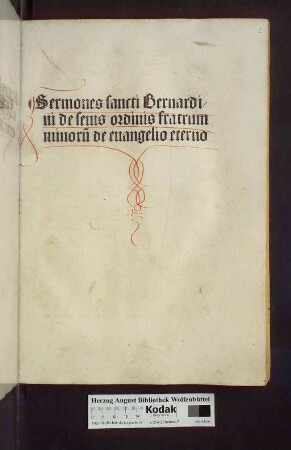 Sermones sancti Bernardi-
ni de senis ordinis fratrum
minorū de euangelio eterno
Herzog August Bibliothek Wolfenbüttel
Kodak